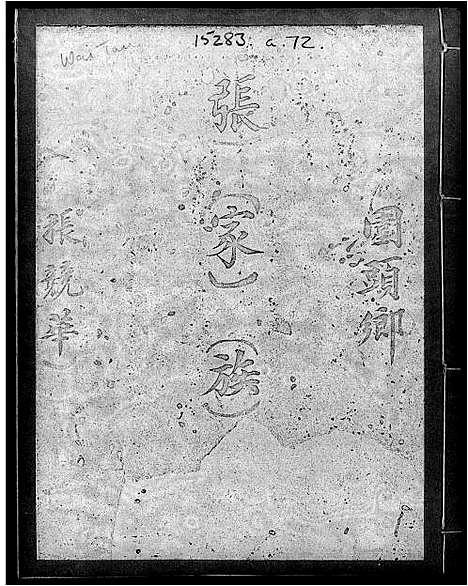 15283. a. 72.
圍頭鄉
張（家）（族）
張競華